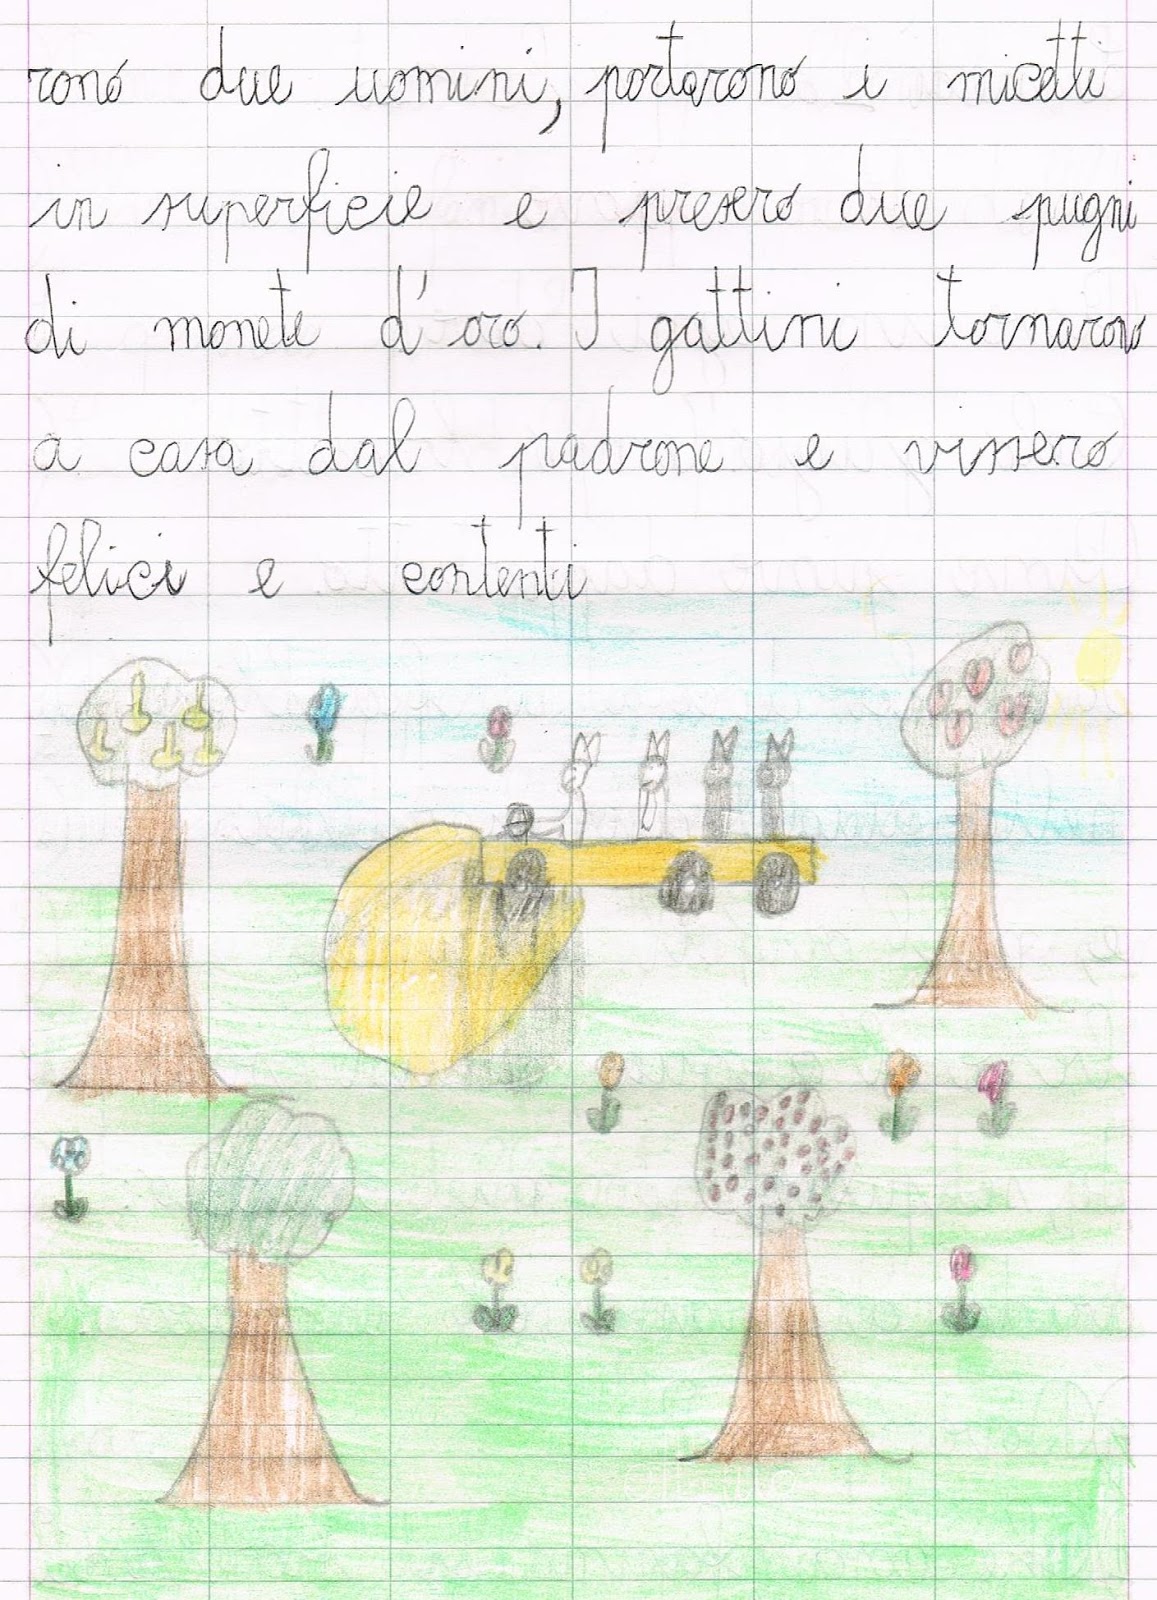 rono due uomini, portarono i micetti
in superficie e presero due pugni
di monete d'oro. I gattini tornarono
a casa dal padrone e vissero
felici e contenti